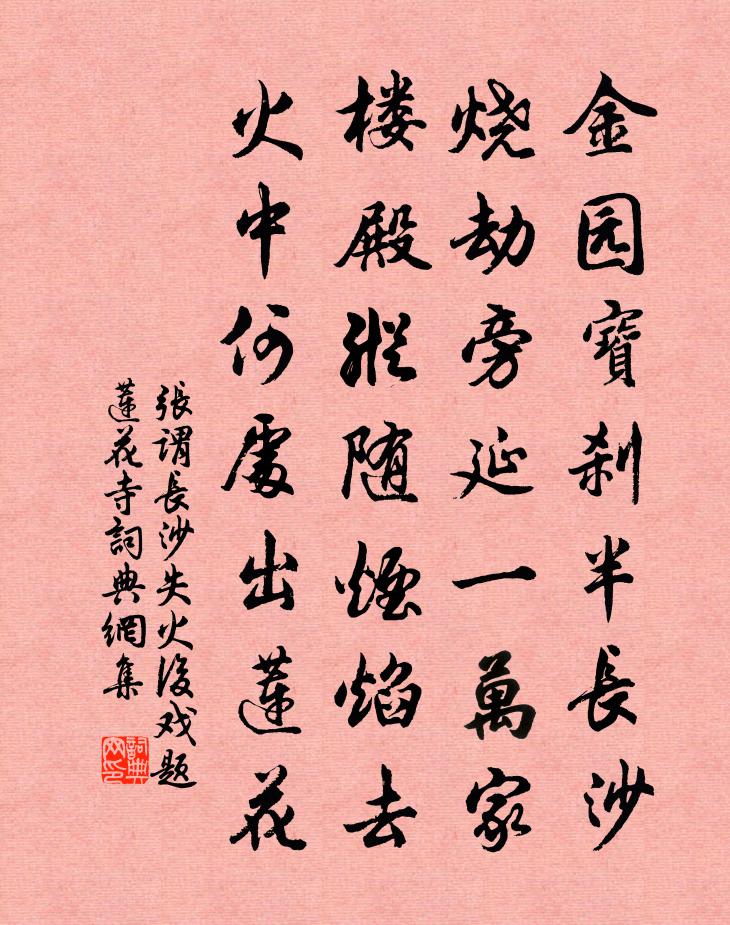 金园寶刹半長沙
烧劫旁延一萬家
楼殿縱随煙焰去
火中何處出蓮花
張謂長沙失火後戏题
蓮花寺詞典網集
詞典
网印